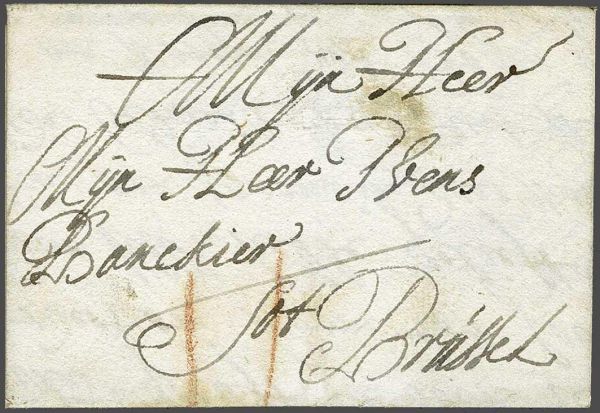 Mijn Heer
Mijn Heer
Banckier
tot Brüssel